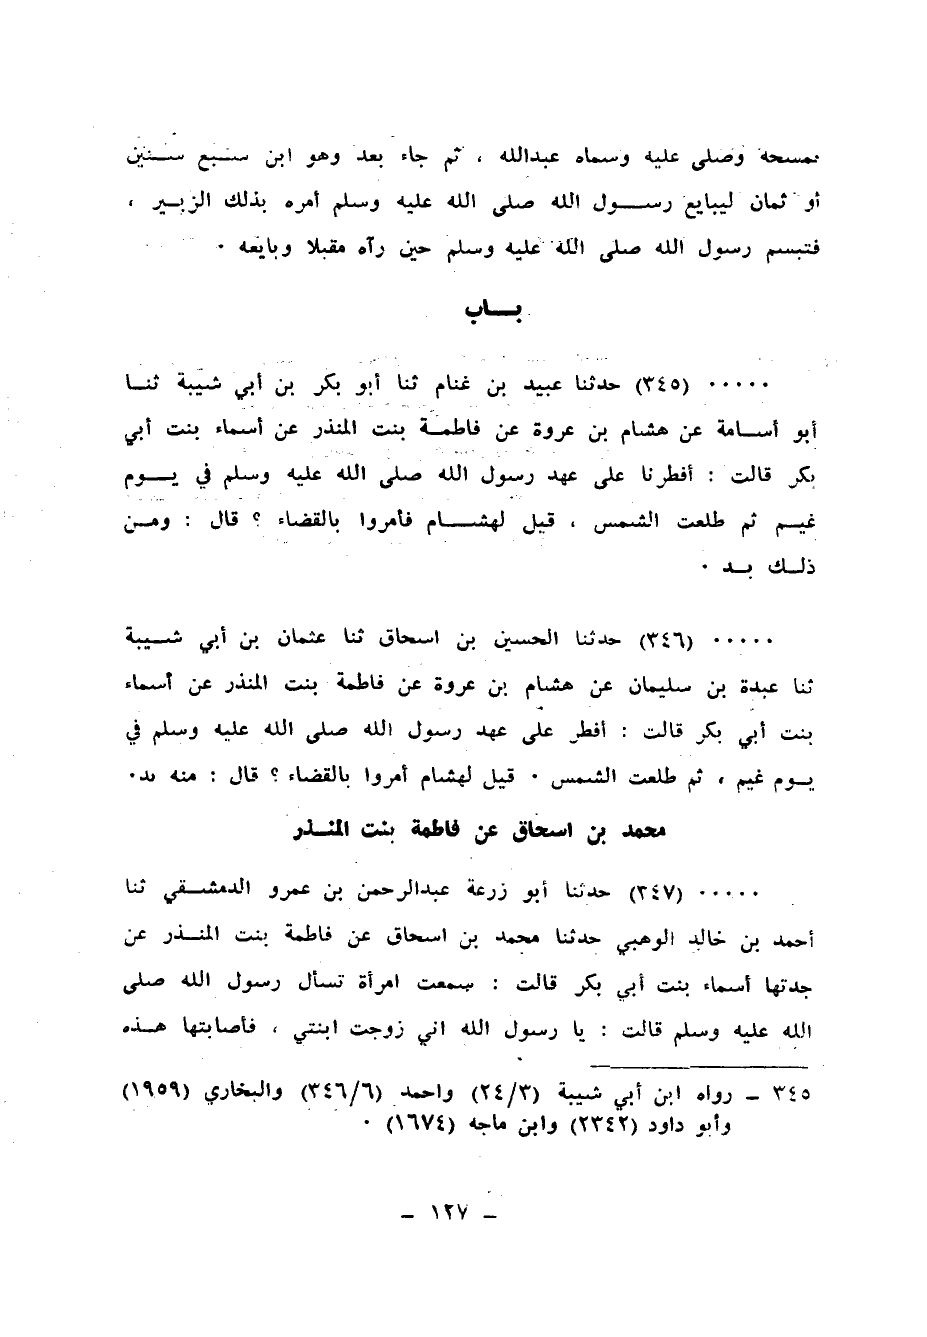 فمسحه وصلى عليه وسماه عبدالله ، ثم جاء بعد وهو ابن سبع سنين
أو ثمان ليبايع رسول الله صلى الله عليه وسلم أمره بذلك الزبير ،
فتبسم رسول الله صلى الله عليه وسلم حين رآه مقبلا وبايعه .
باب
..... (٣٤٥) حدثنا عبيد بن غنام ثنا أبو بكر بن أبي شيبة ثنا
أبو أسامة عن هشام بن عروة عن فاطمة بنت المنذر عن أسماء بنت أبي
بكر قالت : أفطرنا على عهد رسول الله صلى الله عليه وسلم في يوم
غيم ثم طلعت الشمس ، قيل لهشام فأمروا بالقضاء ؟ قال : ومن
ذلك بد .
..... (٣٤٦) حدثنا الحسين بن اسحاق ثنا عثمان بن أبي شيبة
ثنا عبدة بن سليمان عن هشام بن عروة عن فاطمة بنت المنذر عن أسماء
بنت أبي بكر قالت : أفطر على عهد رسول الله صلى الله عليه وسلم في
يوم غيم ، ثم طلعت الشمس . قيل لهشام أمروا بالقضاء ؟ قال : منه بد.
محمد بن اسحاق عن فاطمة بنت المنذر
..... (٣٤٧) حدثنا أبو زرعة عبدالرحمن بن عمرو الدمشقي ثنا
أحمد بن خالد الوهبي حدثنا محمد بن اسحاق عن فاطمة بنت المنذر عن
جدتها أسماء بنت أبي بكر قالت : سمعت امرأة تسأل رسول الله صلى
الله عليه وسلم قالت : يا رسول الله اني زوجت ابنتي ، فأصابتها هذه
٣٤٥ – رواه ابن أبي شيبة (٢٤/٣) واحمد (٣٤٦/٦) والبخاري (١٩٥٩)
وأبو داود (٢٣٤٢) وابن ماجه (١٦٧٤) .
– ١٢٧ –